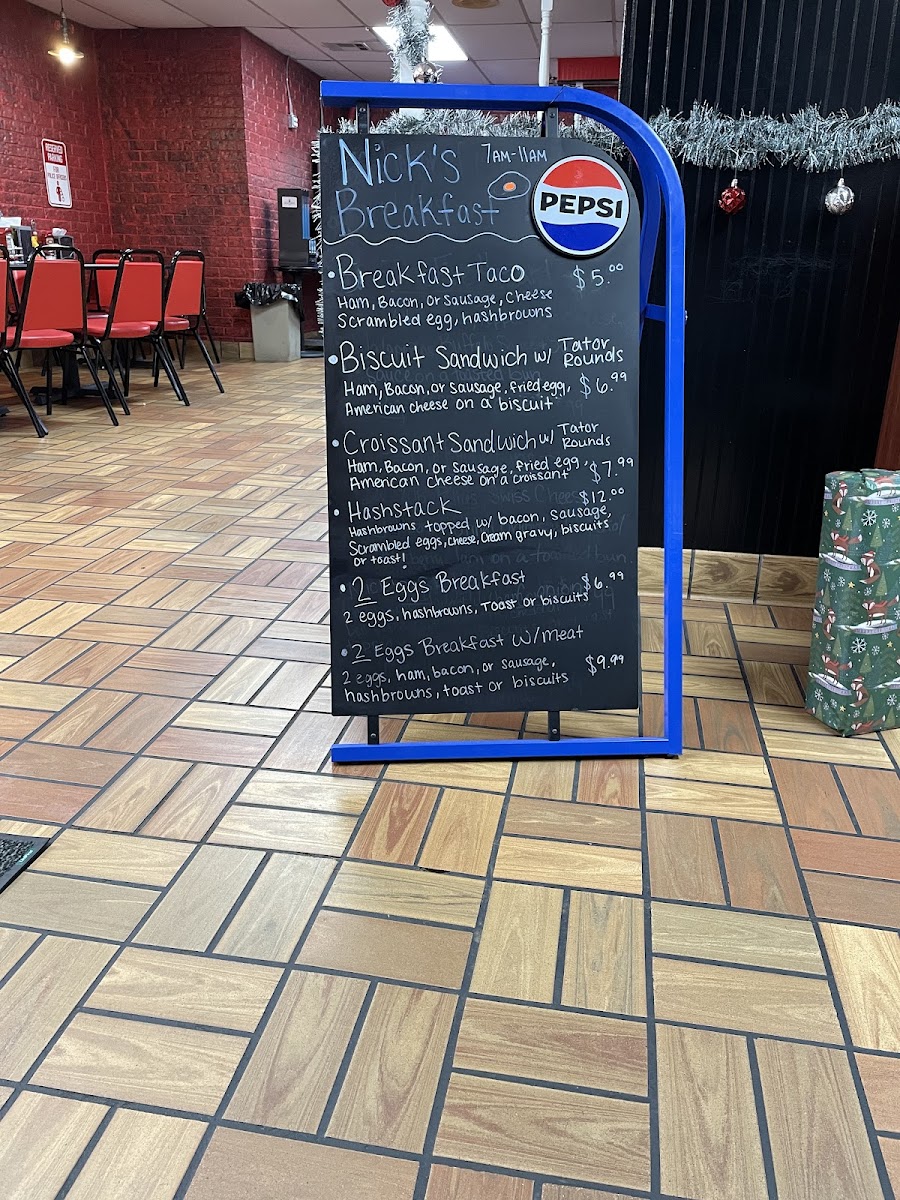 RESERVED
PARKING
Nick's 7AM-11AM
Breakfast
PEPSI
• Breakfast Taco $5.00
Ham, Bacon, or Sausage, Cheese
Scrambled egg, hashbrowns
• Biscuit Sandwich w/ Tator Rounds
Ham, Bacon, or Sausage, fried egg, $6.99
American cheese on a biscuit
• Croissant Sandwich w/ Tator Rounds
Ham, Bacon, or Sausage, fried egg, $7.99
American cheese on a croissant
• Hashstack $12.00
Hashbrowns topped w/ bacon, sausage,
Scrambled eggs, cheese, cream gravy, biscuits
or toast!
• 2 Eggs Breakfast $6.99
2 eggs, hashbrowns, Toast or biscuits
• 2 Eggs Breakfast w/meat
2 eggs, ham, bacon, or sausage, $9.99
hashbrowns, toast or biscuits